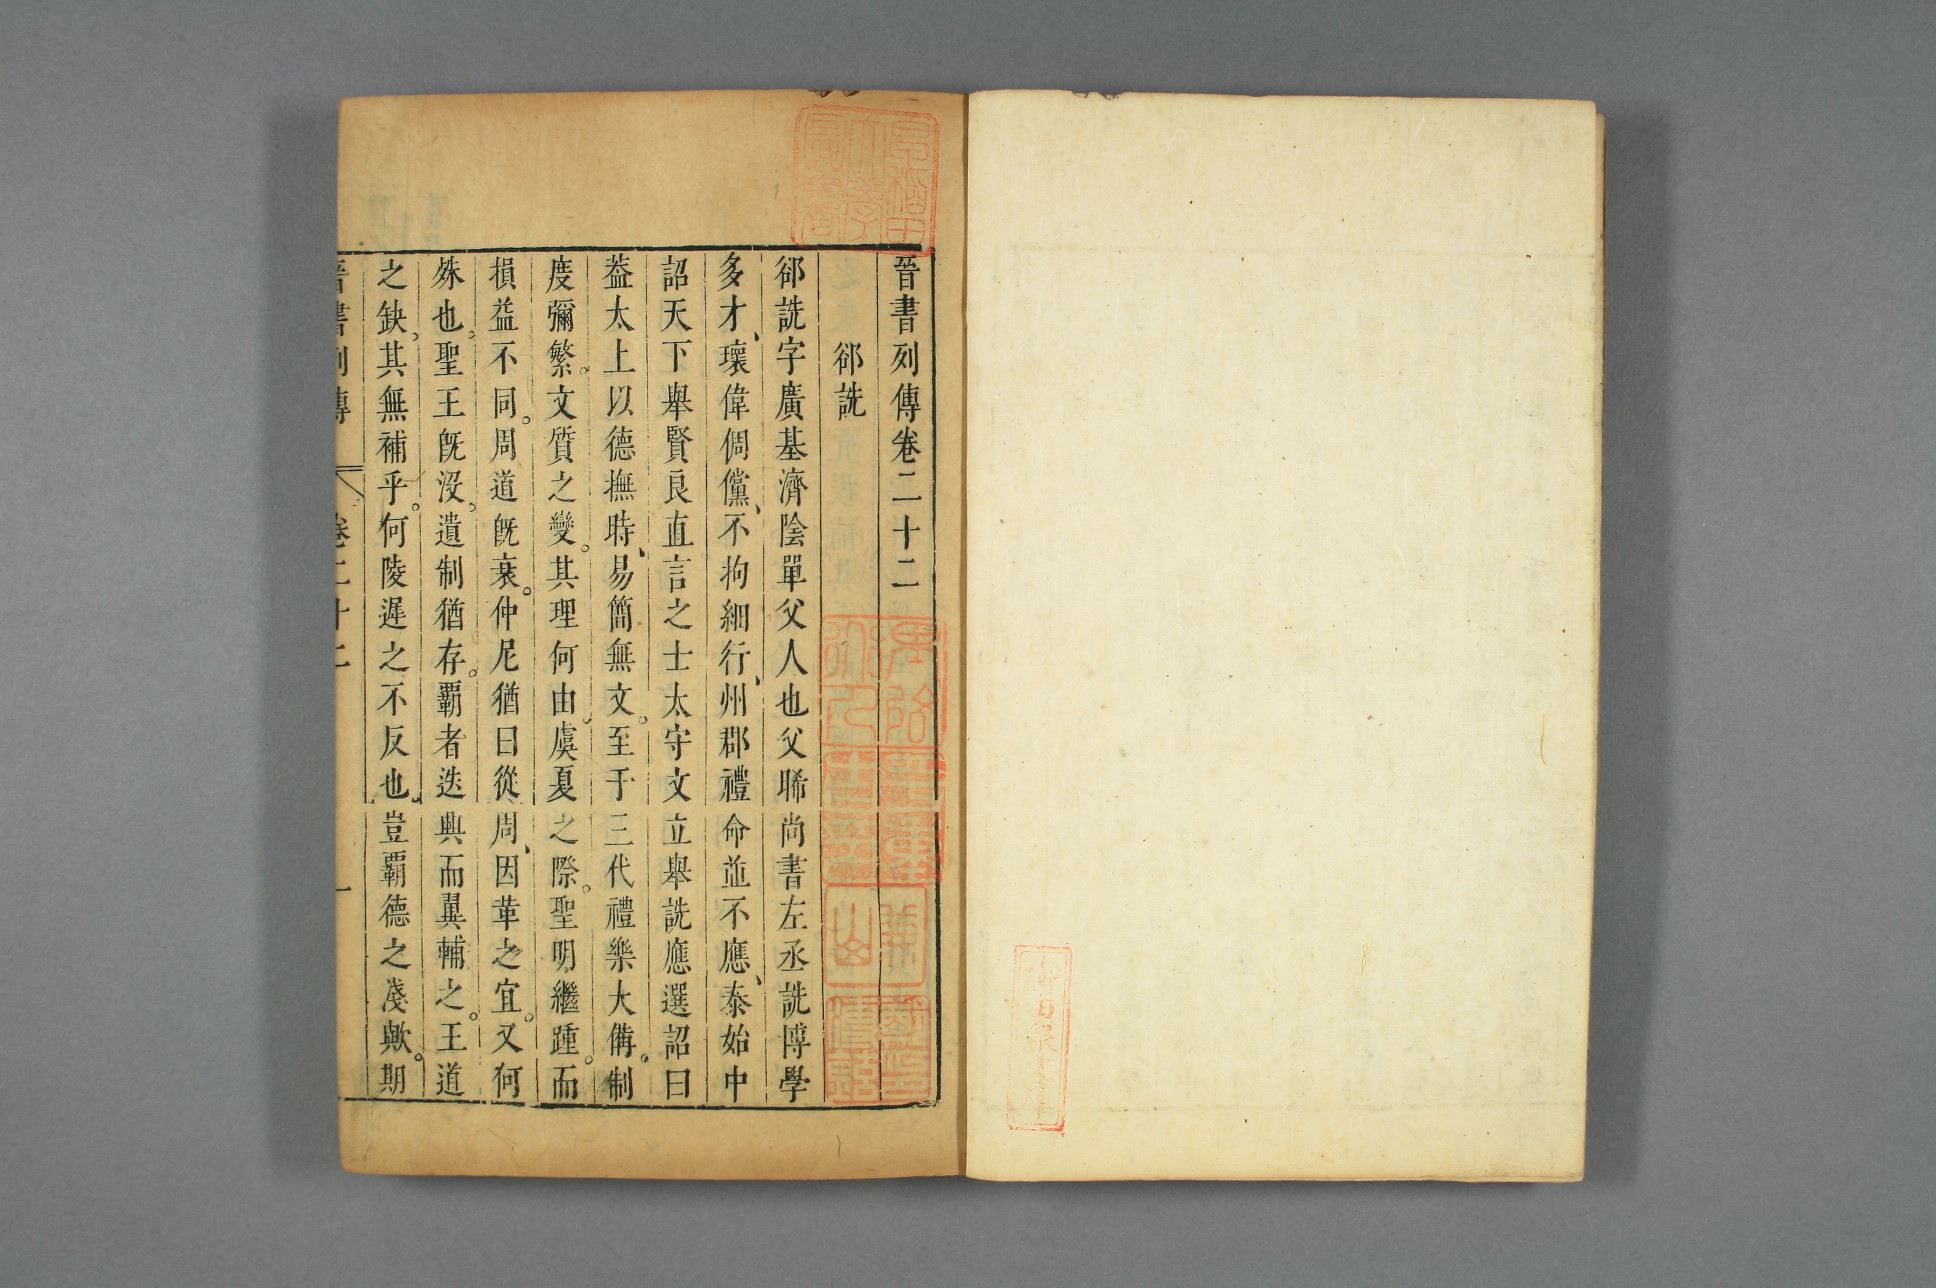 晉書列傳卷二十二
郤詵
郤詵字廣基濟陰單父人也父晞尚書左丞詵博學
多才、瓌偉倜儻、不拘細行、州郡禮命並不應、泰始中
詔天下舉賢良直言之士太守文立舉詵應選詔曰
葢太上以德撫時、易簡無文。至于三代禮樂大備。制
度彌繁。文質之變。其理何由。虞夏之際。聖明繼踵。而
損益不同。周道旣衰。仲尼猶曰從周、因革之宜。又何
殊也。聖王旣没。遺制猶存。覇者迭興而翼輔之。王道
之缺。其無補乎。何陵遲之不反也。豈覇德之淺歟。期
晉書列傳 卷二十二 一